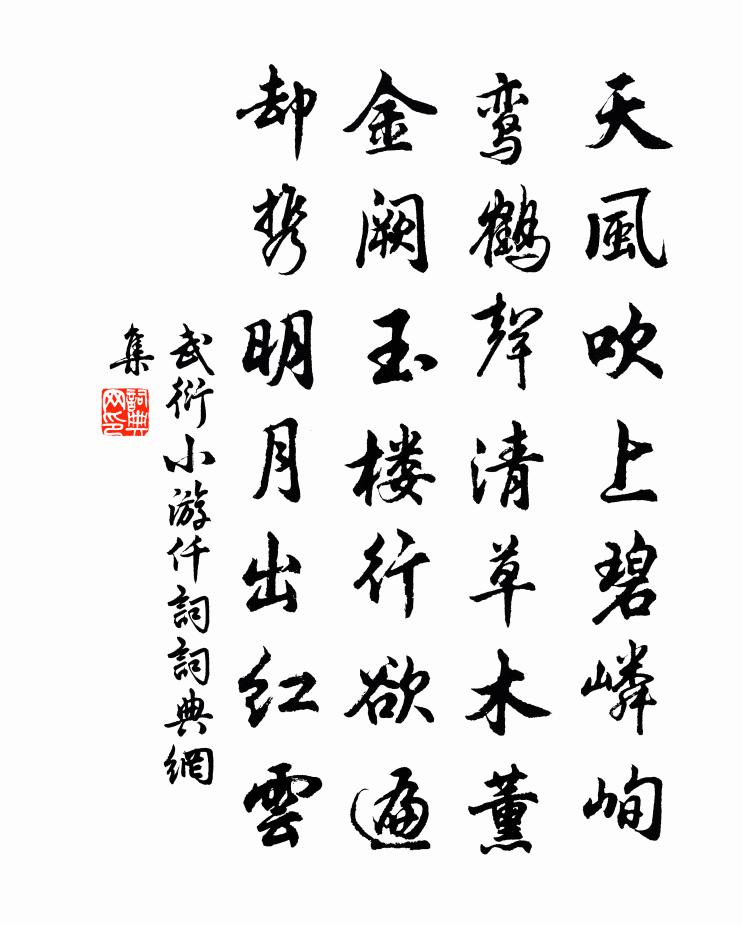 天風吹上碧嶙峋
鸾鶴聲清草木薰
金阙玉楼行欲遍
却携明月出红雲
武衍小游仟詞詞典網
集
詞典
网印